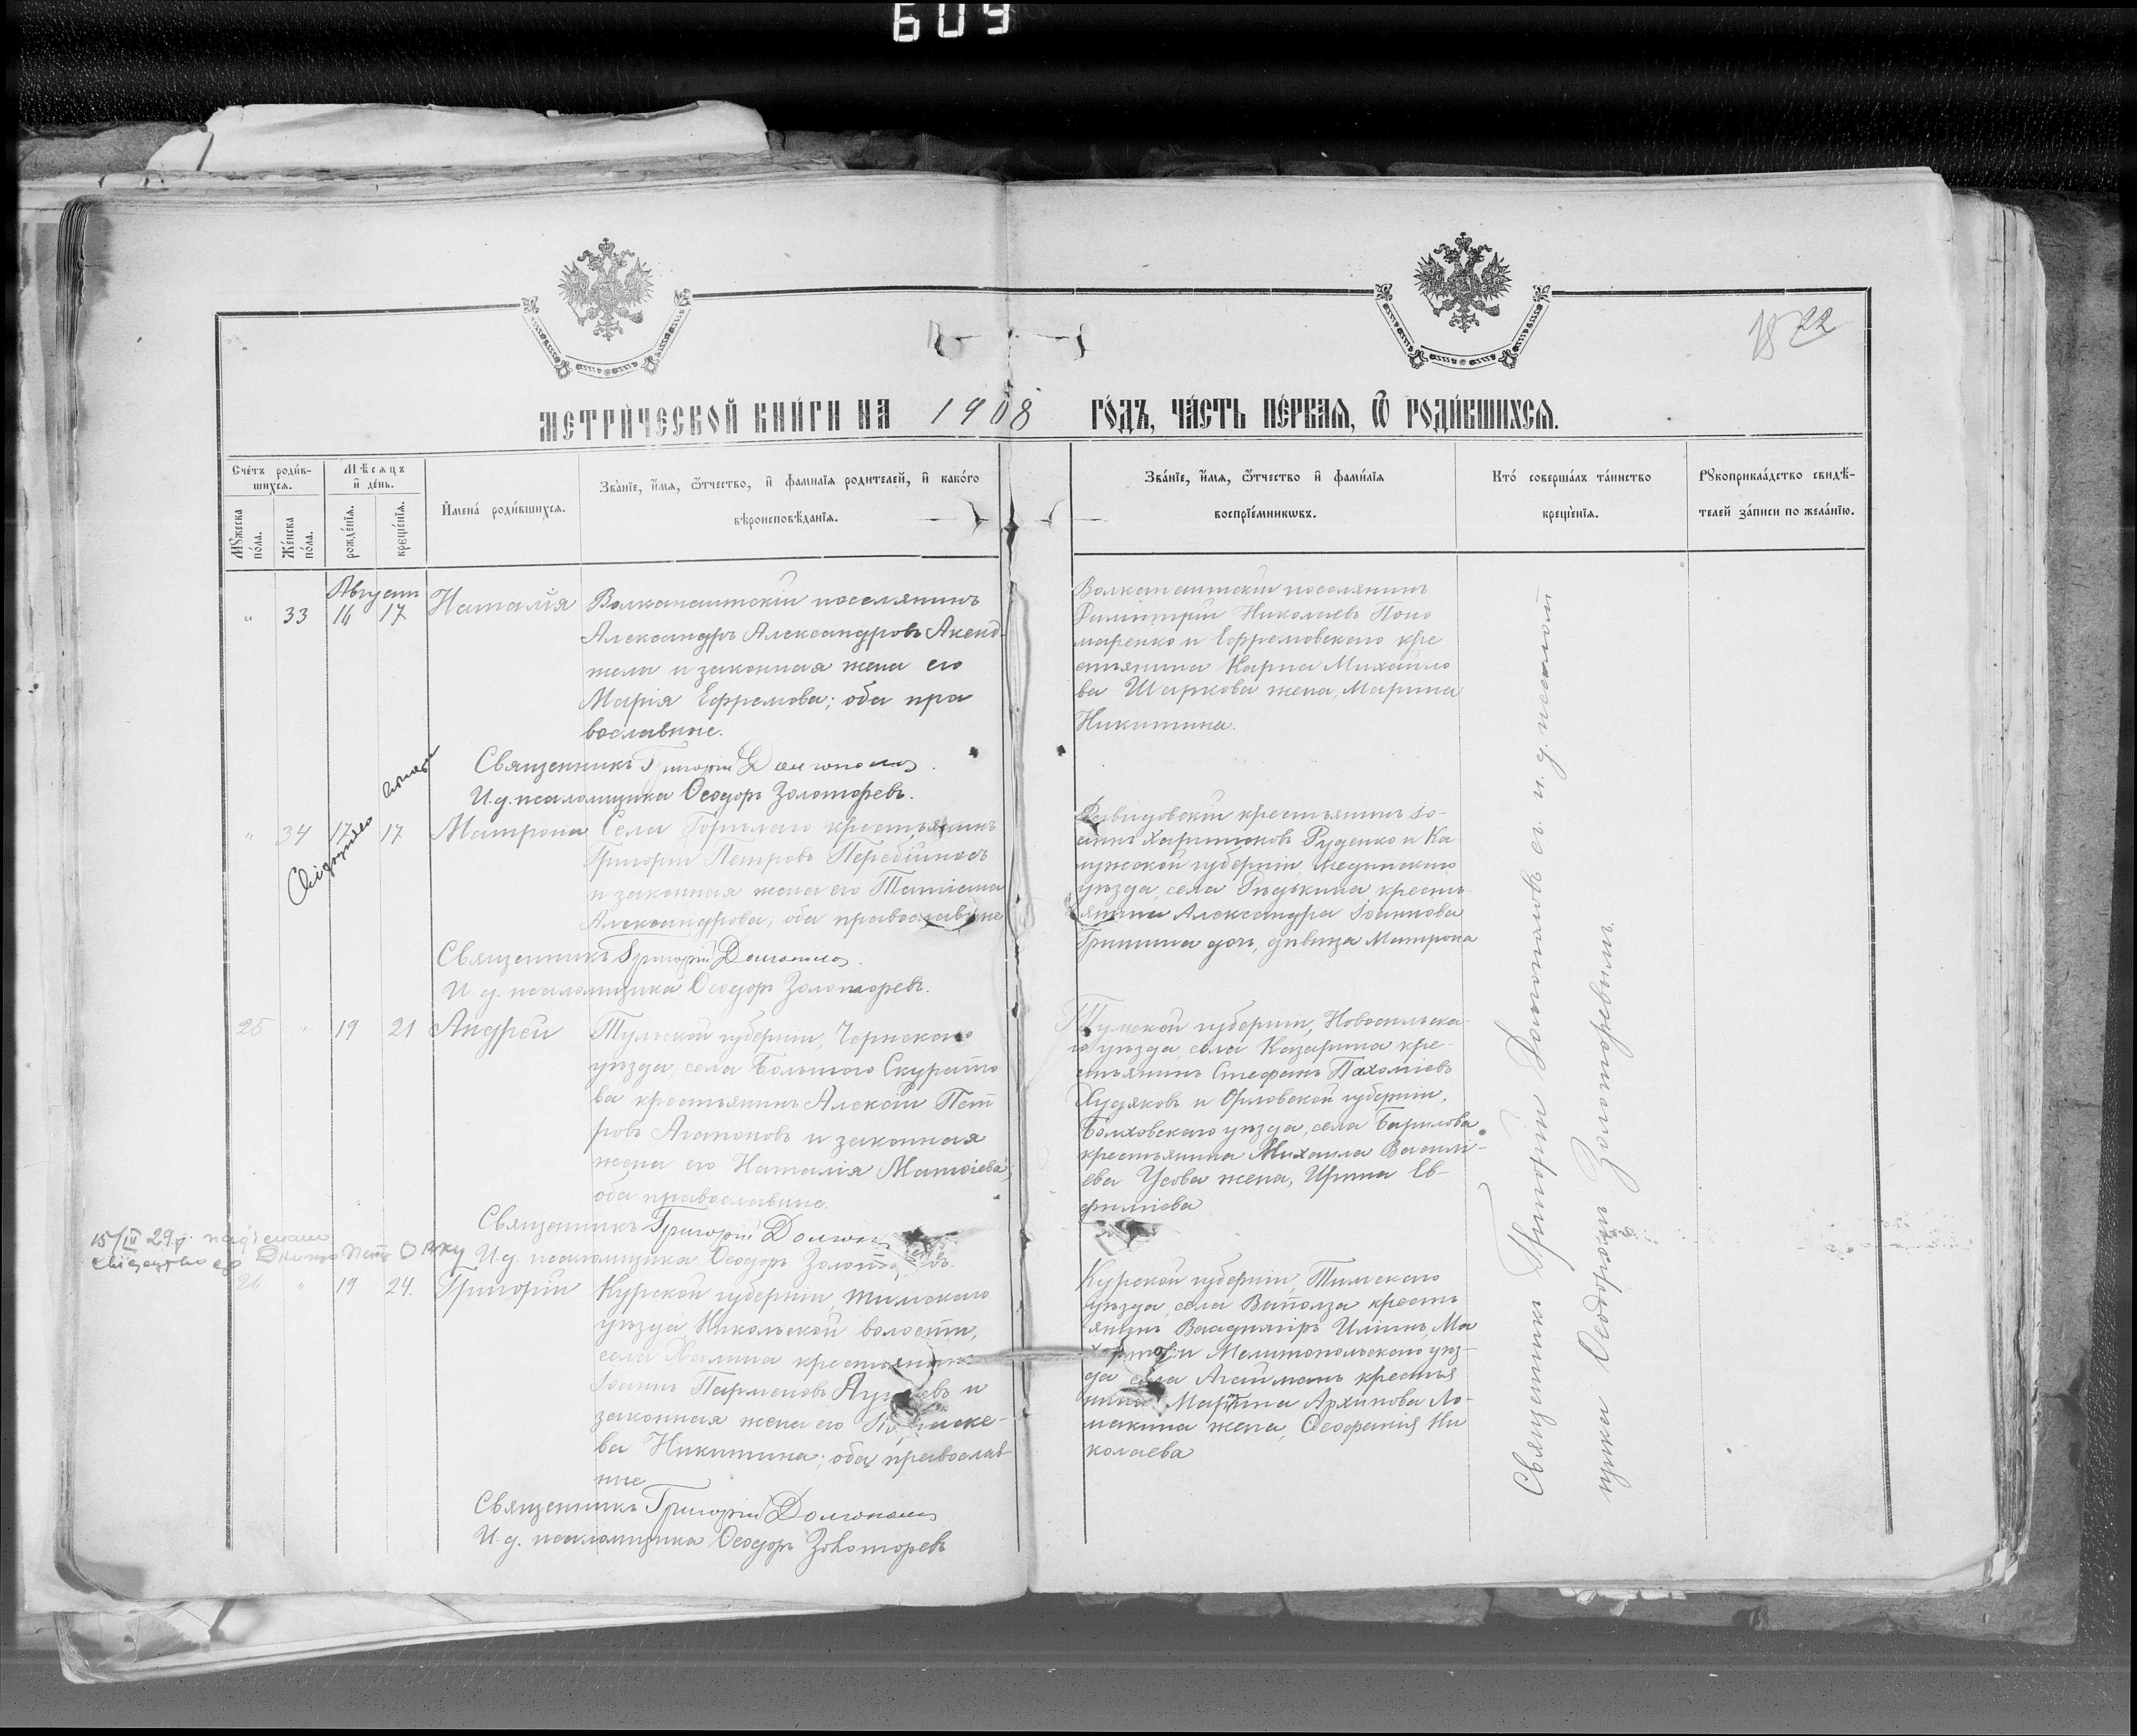 609
18 22
МЕТРИ́ЧЕСКОЙ КНИ́ГИ НА 1908 ГО́ДЪ, ЧА́СТЬ ПЕ́РВАѦ, Ѿ РОДИ́ВШИХСѦ.
Сче́тъ роди́в-
шихсѧ.
Мѣсѧцъ
и҆ де́нь.
Мꙋжеска
по́ла.
Же́нска
по́ла.
рожде́нїѧ.
креще́нїѧ.
И҆мена̀ роди́вшихсѧ.
Зва́нїе, и҆́мѧ, ѻ҆́тчество, и҆ фамилїѧ родителей, и҆ како́го
вѣроисповѣ́данїѧ.
Зва́нїе, и҆́мѧ, ѻ҆́тчество и҆ фами́лїѧ
воспрїе́мникѡвъ.
Кто̀ соверша́лъ та́инство
креще́нїѧ.
Рꙋкоприкла́дство свидѣ́-
телей за́писи по жела́нїю.
Август
" 33 14 17 Наталія
Волканештскій поселянинъ
Александръ Александровъ Акенд-
жели и законная жена его
Марія Ефремова; оба пра
вославные.
Священникъ Григорій Долгополов
И.д. псаломщика Ѳеодоръ Золоторевъ.
Волканештскій поселянинъ
Димитрій Николаевъ Поно
маренко и Ефремовскаго кре
стьянина Карпа Михайло
ва Шаркова жена, Марина
Никитина.
" 34 17 17 Матрона
Села Горѣлаго крестьянинъ
Григорій Петровъ Перебійносъ
и законная жена его Татіана
Александрова; оба православные
Священникъ Григорій Долгополов.
И.д. псаломщика Ѳеодоръ Золоторевъ.
Давидовскій крестьянинъ Іо-
аннъ Харитоновъ Руденко и Ка
лужской губерніи, Медынскаго
уѣзда, села Рѣдькина кресть-
янина Александра Іоаннова
Гришина дочь, дѣвица Матрона
25 " 19 21 Андрей
Тульской губерніи, Чернскаго
уѣзда, села Большого Скурато
ва крестьянинъ Алексѣй Пет
ровъ Агапоновъ и законная
жена его Наталія Матѳіева;
оба православные.
Священникъ Григорій
И.д. псаломщика Ѳеодоръ
Тульской губерніи, Новосильска-
го уѣзда, села Казарина кре-
стьянинъ Стефанъ Пахоміевъ
Худяковъ и Орловской губерніи,
Болховскаго уѣзда, села Барилова
крестьянина Михаила Василі-
ева Усова жена, Ирина Ев-
фиміева
15/IV 29 р.
26 " 19 24. Григорій
Курской губерніи, Тимскаго
уѣзда Никольской волости,
села крестьянинъ
Іоаннъ Парменовъ и
законная жена его Параске-
ва Никитина; оба православ-
ные
Священникъ Григорій Долгополов
И.д. псаломщика Ѳеодоръ Золоторевъ
Курской губерніи, Тимскаго
уѣзда, села Выполза кресть
янинъ Владиміръ Ильинъ
и Мелитопольскаго уѣз-
да села Агайманъ крестья
нина Мартина Архипова Ло-
макина жена, Ѳеофанія Ни
колаева
Священникъ Григорій Долгополовъ съ и. д. псалом
щика Ѳеодоромъ Золоторевымъ.